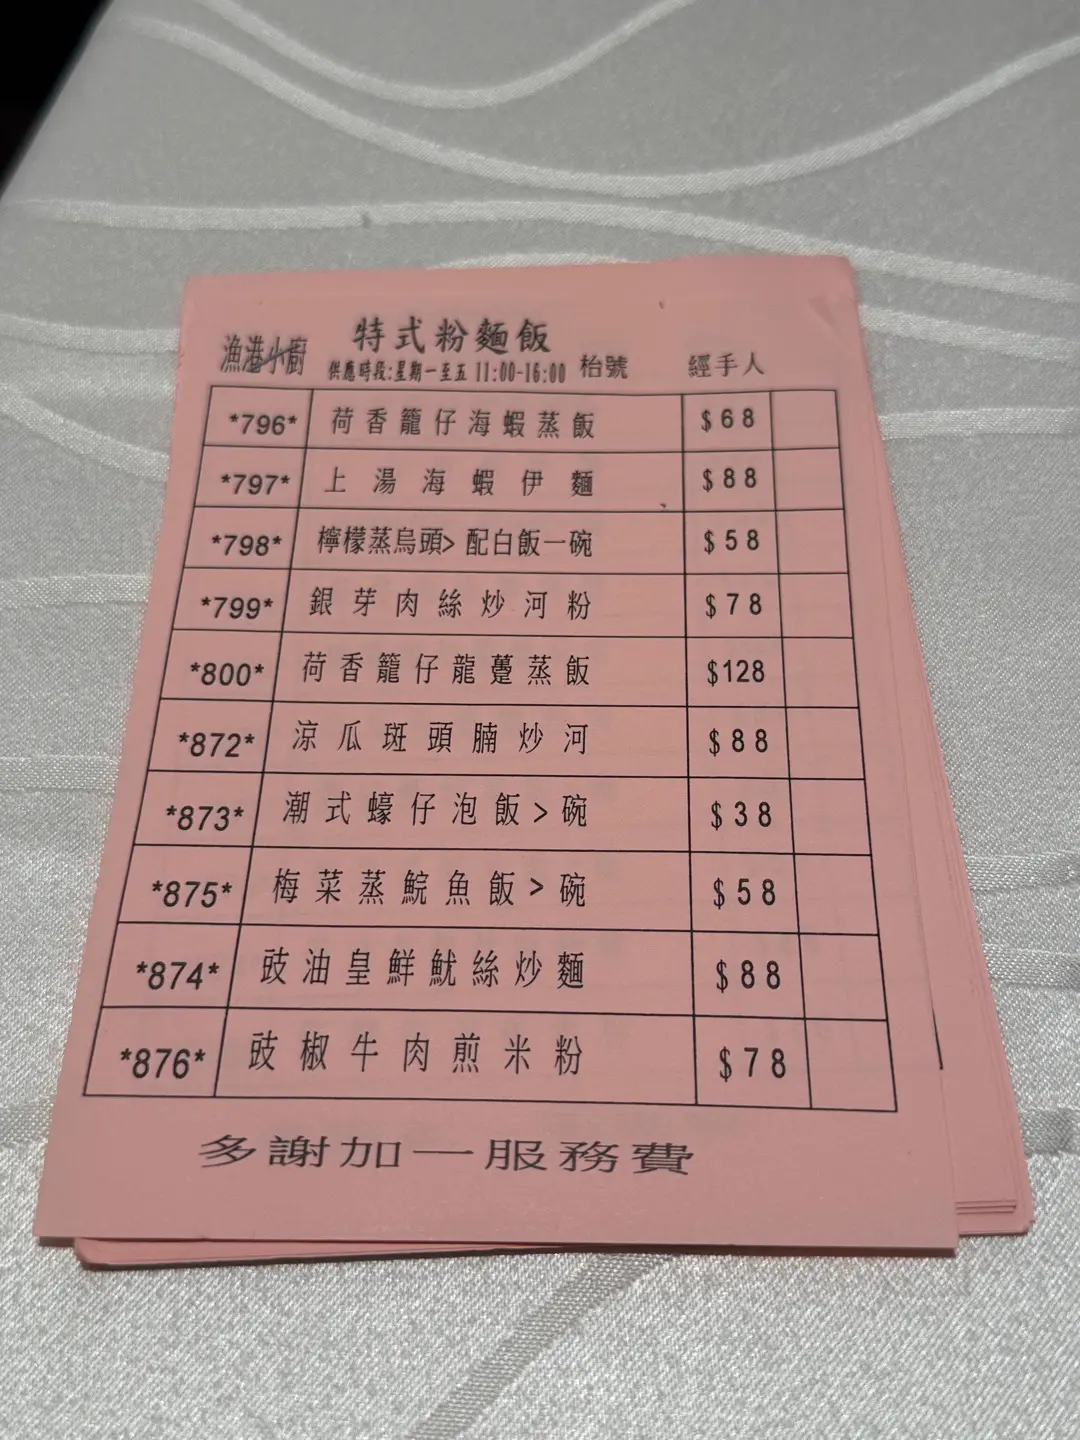 漁港小廚 特式粉麵飯
供應時段:星期一至五 11:00-16:00 枱號 經手人
*796* 荷香籠仔海蝦蒸飯 $68
*797* 上湯海蝦伊麵 $88
*798* 檸檬蒸烏頭> 配白飯一碗 $58
*799* 銀芽肉絲炒河粉 $78
*800* 荷香籠仔龍躉蒸飯 $128
*872* 涼瓜斑頭腩炒河 $88
*873* 潮式蠔仔泡飯>碗 $38
*875* 梅菜蒸鯇魚飯>碗 $58
*874* 豉油皇鮮魷絲炒麵 $88
*876* 豉椒牛肉煎米粉 $78
多謝加一服務費